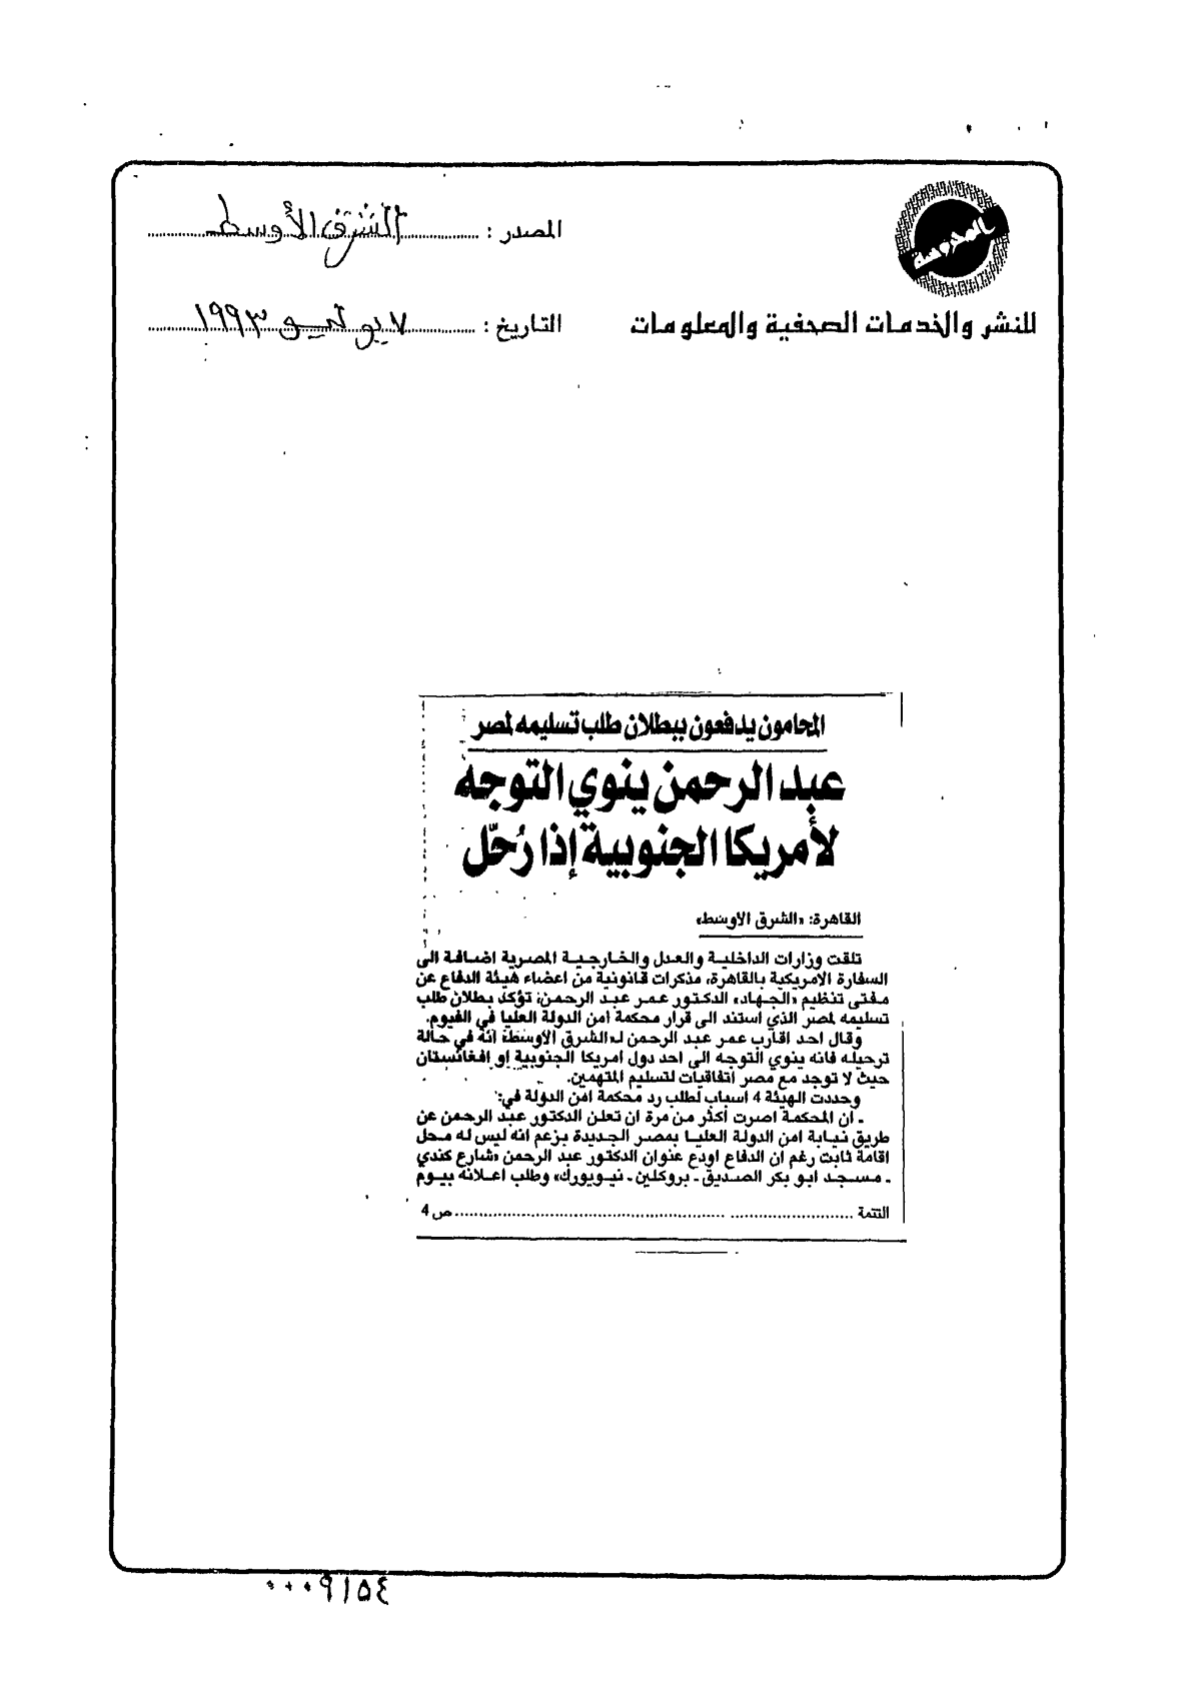 المحروسة
للنشر والخدمات الصحفية والمعلومات
المصدر : الشرق الأوسط
التاريخ : ٧ يوليو ١٩٩٣
المحامون يدفعون ببطلان طلب تسليمه لمصر
عبد الرحمن ينوي التوجه
لأمريكا الجنوبية إذا رُحّل
القاهرة: «الشرق الاوسط»
تلقت وزارات الداخلية والعدل والخارجية المصرية اضافة الى
السفارة الامريكية بالقاهرة، مذكرات قانونية من اعضاء هيئة الدفاع عن
مفتي تنظيم «الجهاد» الدكتور عمر عبد الرحمن، تؤكد بطلان طلب
تسليمه لمصر الذي استند الى قرار محكمة امن الدولة العليا في الفيوم.
وقال احد اقارب عمر عبد الرحمن لـ«الشرق الاوسط» انه في حالة
ترحيله فانه ينوي التوجه الى احد دول امريكا الجنوبية او افغانستان
حيث لا توجد مع مصر اتفاقيات لتسليم المتهمين.
وحددت الهيئة 4 اسباب لطلب رد محكمة امن الدولة في:
ـ ان المحكمة اصرت أكثر من مرة ان تعلن الدكتور عبد الرحمن عن
طريق نيابة امن الدولة العليا بمصر الجديدة بزعم انه ليس له محل
اقامة ثابت رغم ان الدفاع اودع عنوان الدكتور عبد الرحمن «شارع كندي
ـ مسجد ابو بكر الصديق ـ بروكلين ـ نيويورك» وطلب اعلانه بيوم
التتمة ص 4
٠٠٠٩١٥٤